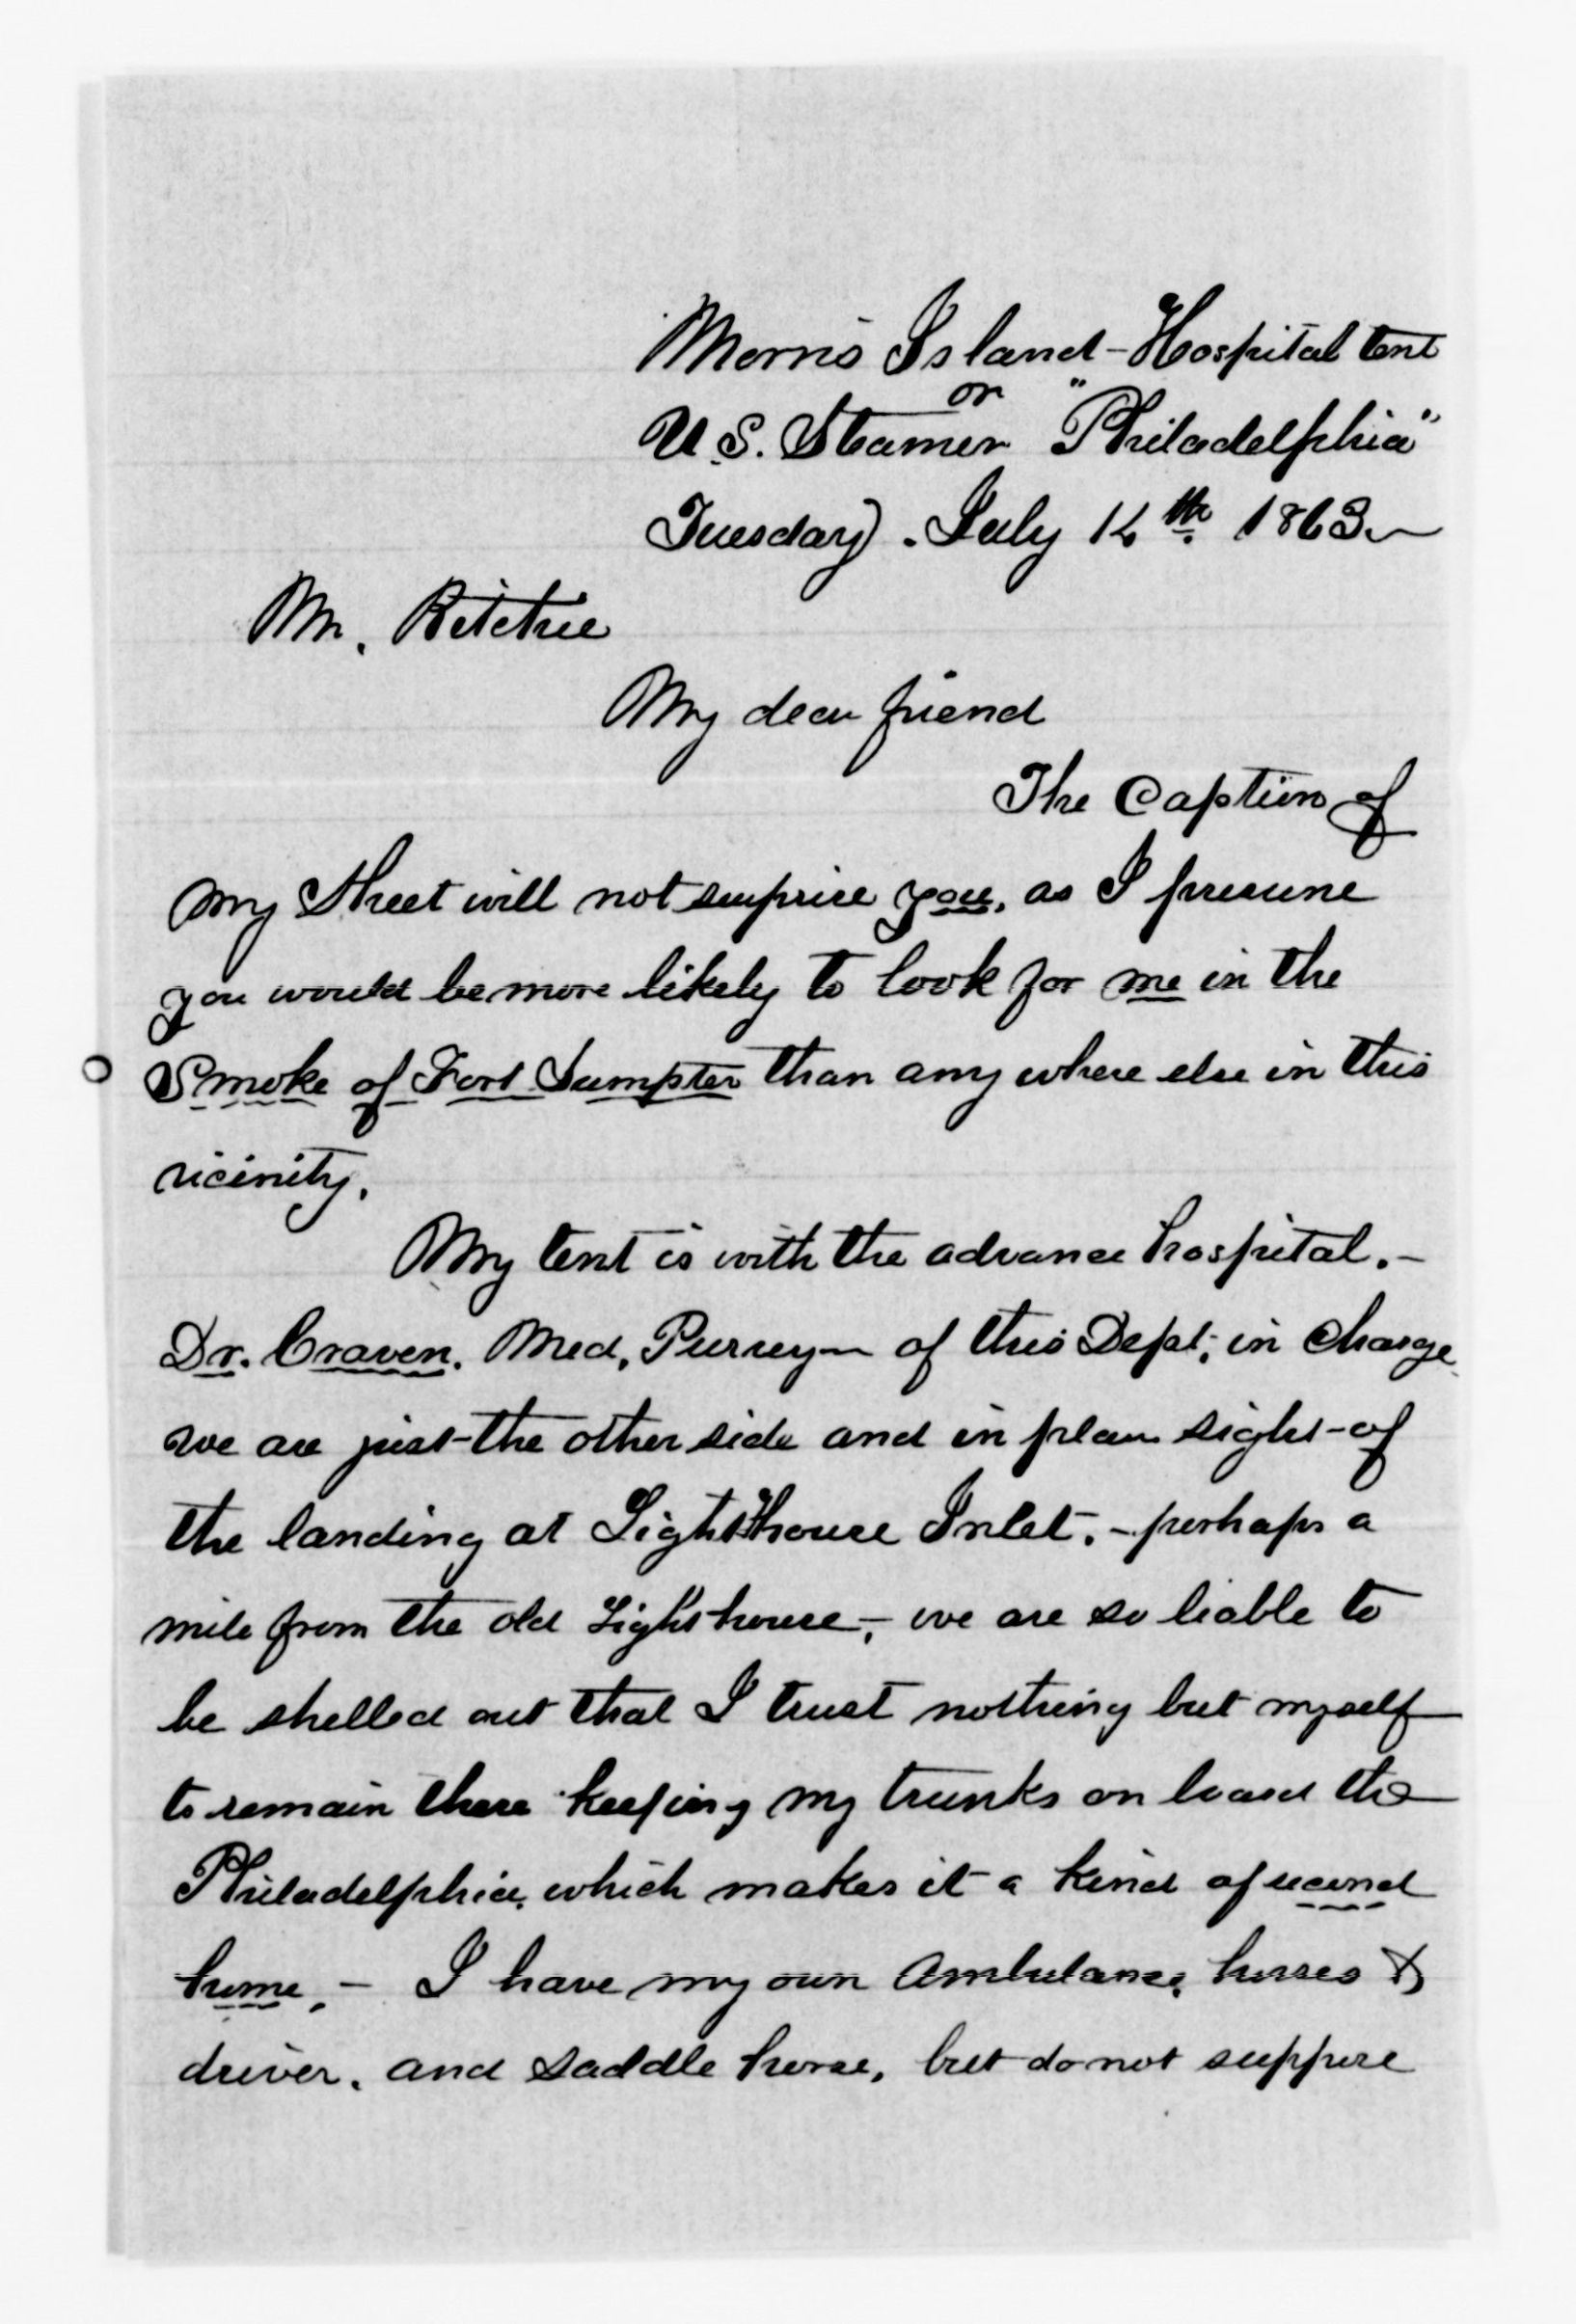 Morris Island - Hospital tent
or "
U.S. Steamer "Philadelphia"
Tuesday. July 14th 1863.
Mr. Ritchie
My dear friend
The Caption of
my Sheet will not surprise you, as I presume
you would be more likely to look for me in the
Smoke of Fort Sumpter than any where else in this
vicinity.
My tent is with the advance hospital. -
Dr. Craven, Med, Purveyor of this Dept, in charge
we are just the other side and in plain sight of
the landing at Light House Inlet, - perhaps a
mile from the old Lighthouse, we are so liable to
be shelled out that I trust nothing but myself
to remain there keeping my trunks on board the
Philadelphia, which makes it a kind of second
home, - I have my own Ambulance, horses &
driver, and saddle horse, but do not suppose